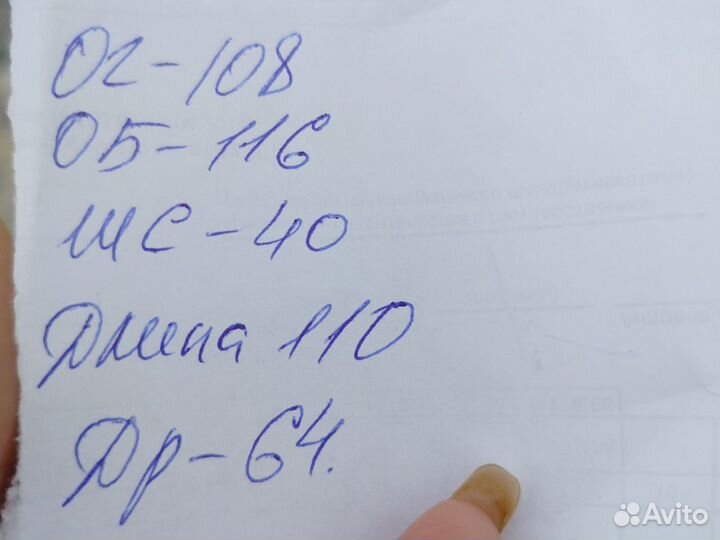 ОГ-108
ОБ-116
ШС-40
Длина 110
Др-64.
Avito